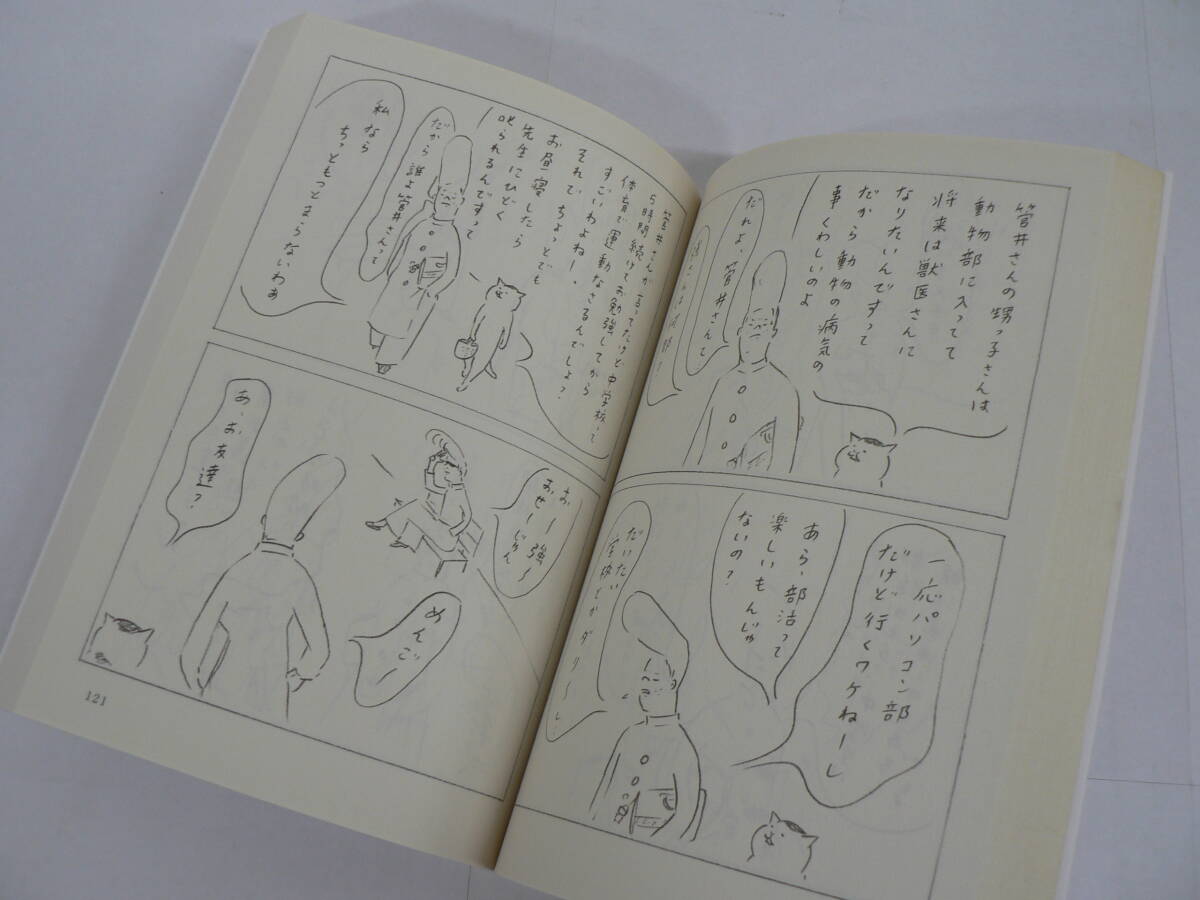 菅井さんの甥っ子さんは
動物部に入ってて
将来は獣医さんに
なりたいんですって
だから動物の病気の
事くわしいのよ
だれよ、菅井さんて
一応パソコン部
だけど行くワケねーし
あら、部活って
楽しいもんじゃ
ないの?
だいたい
学校とかダリーし
菅井さんが言ってたけど中学校って
5時間続けてお勉強してから
体育で運動なさるんでしょ?
すごいわよねー。
それでちょっとでも
お昼寝したら
先生にひどく
叱られるんですって
だから誰よ菅井さんって
私なら
ちっともつとまらないわぁ
おー強〜
おせーじゃん
めんごー
あ、お友達?
121